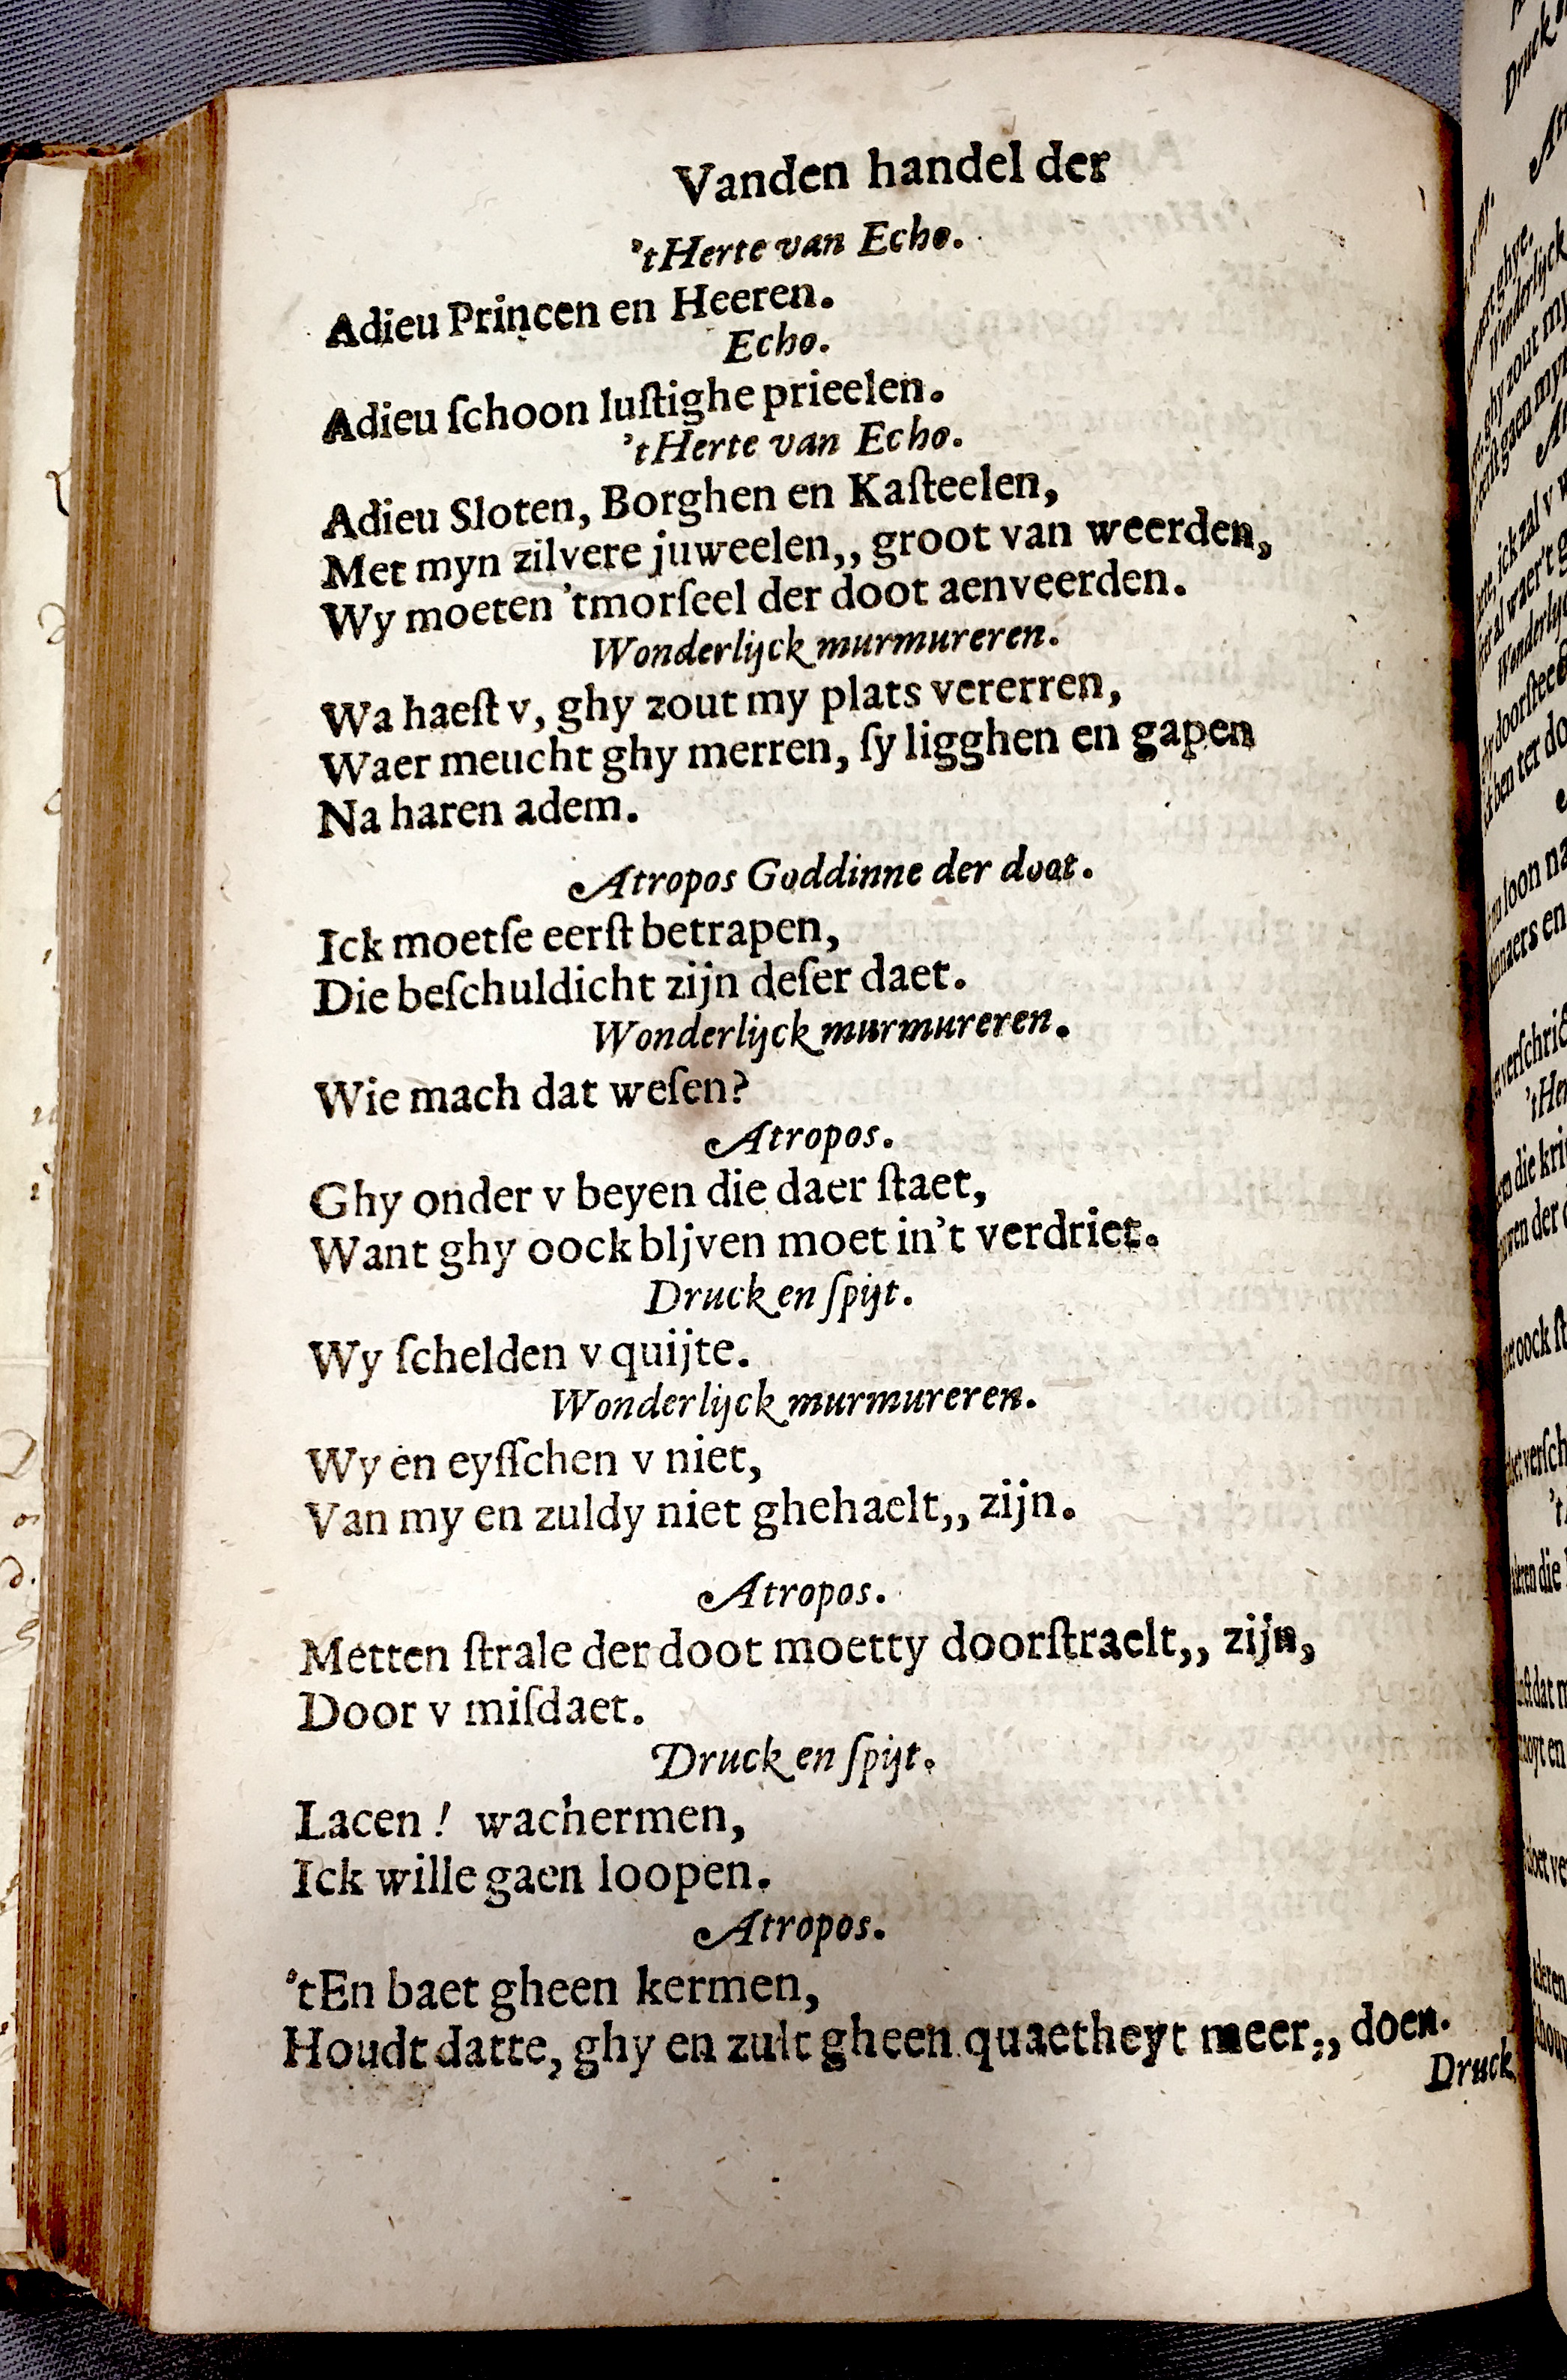 Vanden handel der
'tHerte van Echo.
Adieu Princen en Heeren.
Echo.
Adieu ſchoon luſtighe prieelen.
'tHerte van Echo.
Adieu Sloten, Borghen en Kaſteelen,
Met myn zilvere juweelen,, groot van weerden,
Wy moeten 'tmorſeel der doot aenveerden.
Wonderlijck murmureren.
Wa haeſt v, ghy zout my plats vererren,
Waer meucht ghy merren, ſy ligghen en gapen
Na haren adem.
Atropos Goddinne der doot.
Ick moetſe eerſt betrapen,
Die beſchuldicht zijn deſer daet.
Wonderlijck murmureren.
Wie mach dat weſen?
Atropos.
Ghy onder v beyen die daer ſtaet,
Want ghy oock bljven moet in't verdriet.
Druck en ſpijt.
Wy ſchelden v quijte.
Wonderlijck murmureren.
Wy en eyſſchen v niet,
Van my en zuldy niet ghehaelt,, zijn.
Atropos.
Metten ſtrale der doot moetty doorſtraelt,, zijn,
Door v miſdaet.
Druck en ſpijt.
Lacen! wachermen,
Ick wille gaen loopen.
Atropos.
'tEn baet gheen kermen,
Houdt datte, ghy en zult gheen quaetheyt meer,, doen.
Druck